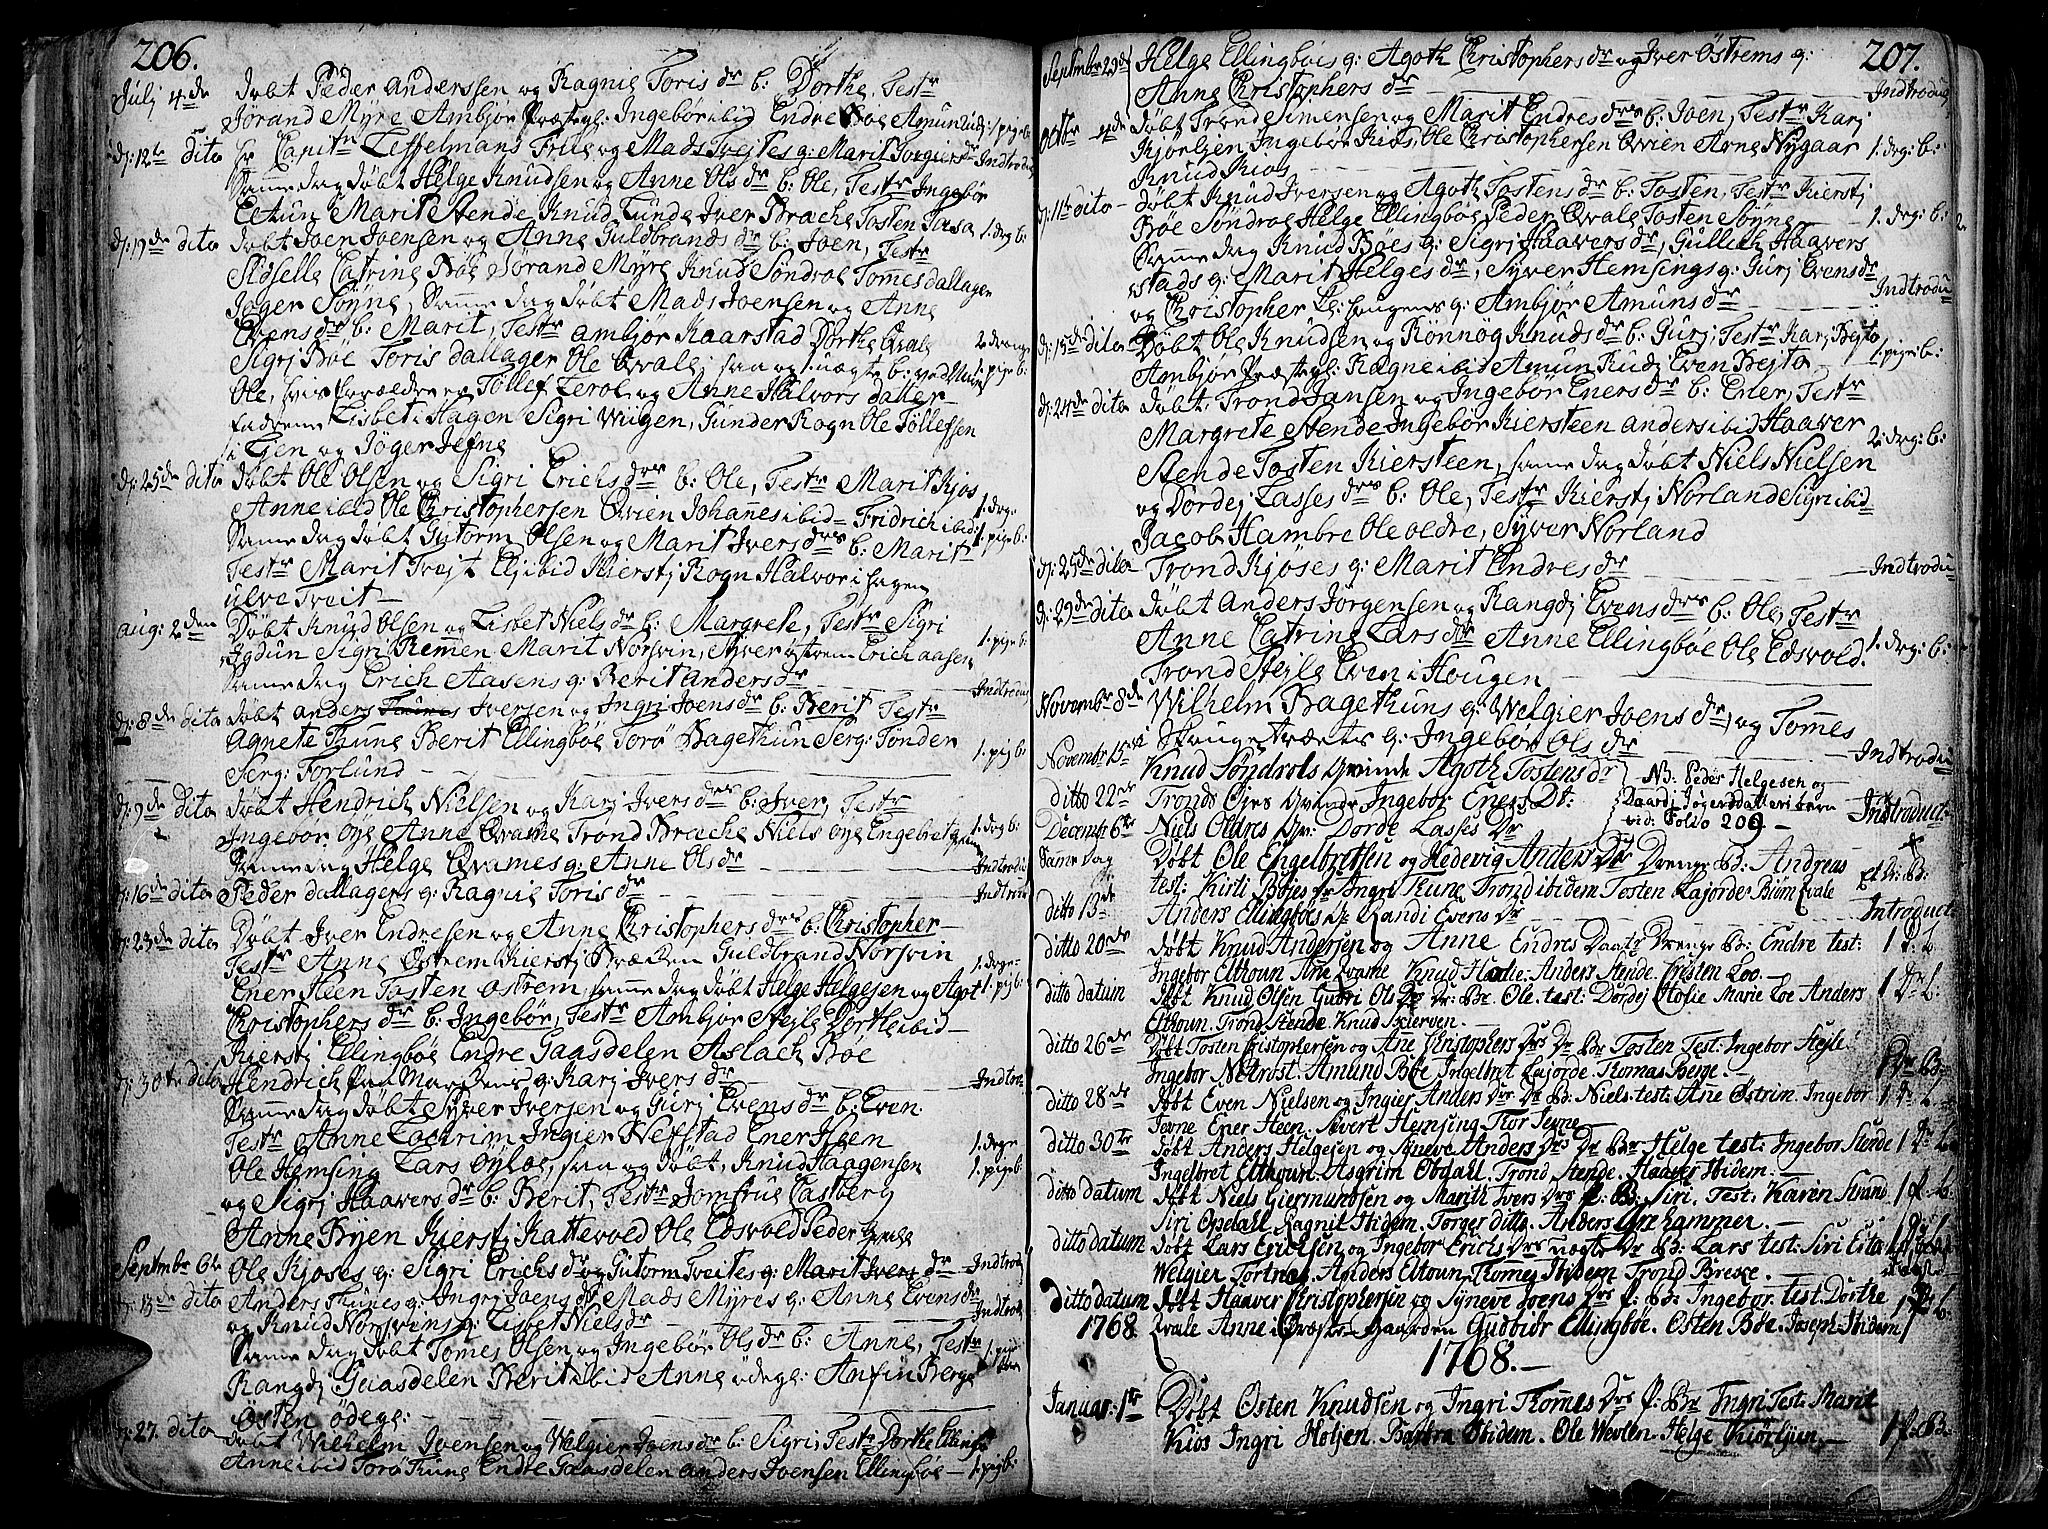 206.
Julj 4de døbt Peder Anderssen og Ragnie Toris dr b: Dorthe, Testr
Jørand Myre Ambjør Præstegl: Ingebör ibid Endre Bøe Amun Rudj 1 pige b:
d: 12te dito hr Capitn Zeffelmans Frue og Mads Tvejtes q: Marit Torgiers dr Indtrodu
Samme dag døbt Helge Knudsen og Anne Ols dr b: Ole, Testr Ingebör
Eltun Marit Stende Knud Lunde Iver Brache Tosten Sasa 1. drg b:
d: 19de dito døbt Joen Joensen og Anne Guldbrands dr b: Joen, Testr
Sidselle Catrine Bøe Jørand Myre Knud Söndroe Tomes dallagen
Jøger Søyne, Samme dag døbt Mads Joensen og Anne
Evens dr b: Marit, Testr ambjør Kaarstad Dorthe Qvale 2 drenge
Sigrj Bøe Toris dallager Ole Qvale, saa og 1. uægte b: ved Navn 1. pige b:
Ole, hvis forældre er Tollef Lerol og Anne Halvors datter
fadrene Lisbet i Hagen Sigri Wiigen, Gunder Rogn Ole Tøllefsen
i Egen og Jøger Jefne
d: 25de dito døbt Ole Olsen og Sigri Erichs dr b: Ole, Testr Marit Kjos
Anne ibid Ole Christophersen Qvien Johanes ibid Fridrich ibid 1. drge
Samme dag døbt Gutorm Olsen og Marit Ivers dr b: Marit 1. pige b:
Testr Marit Tvejt Eli ibid Kierstj Rogn Halvor i hagen
ulve Treit
aug: 2den Døbt Knud Olsen og Lisbet Niels dr b: Margrete, Testr Sigri
Ogdun Sigri Remen Marit Norsvin, Syver østrem Erich aasen 1. pige b:
Samme dag Erich Aasens q: Berit Anders dr Indtrodu
d: 8de dito døbt anders Iversen og Ingri Joens dr b: Berit Testr
Agnete Thune Berit Ellingbøe Torø Bagethun Serg: Tønder 1. pig b:
Serg: Torlund
d: 9de dito døbt Hendrich Nielsen og Karj Ivers dr b: Iver, Testr
Ingebor øye Anne Qvame Trond Brache Niels øye Engebret 1. drg b:
Samme dag Helge Qvames q: Anne Ols dr Indtrodu
d: 16de dito Peder dallagens q: Ragnie Toris dr Indtrodu
d: 23de dito Døbt Iver Endresen og Anne Christophers dr b: Christopher
Testr Anne Østrem Kierstj Brækken Guldbrand Norsvin 1. drge
Ener Heen Tosten ostrem, samme dag døbt Helge Helgesen og Agot 1. pig b:
Christophers dr b: Ingebør, Testr Ambjør Stejle Dorthe ibid
Kierstj Ellingbøe Endre Gaasdelen Aslach Bøe
d: 30te dito Hendrich q: Karj Ivers dr Indtro
Samme dag døbt Syver Iversen og Gurj Evens dr b: Even.
Testr Anne Ingier Nefstad Ener Heen 1. drge
Ole Hemsing Lars øyloe, saa og døbt, Knud Haagensen 1. pig b:
og Sigrj Haavers dr b: Berit, Testr Jomfrue Castberg
Anne Byen Kierstj Kattevold Ole Edsvold Peder Qvale
Septmbr 6te Ole Kjoses q: Sigri Erichs dr og Gutorm Tveites q: Marit Ivers dr Indtrodu
d: 13de dito Anders Thunes q: Ingrj Joens dr Mads Myres q: Anne Evens dr
og Knud Norsvens q: Lisbet Niels dr Indtrodu
Samme dag døbt Tomes Olsen og Ingebör Ols dr b: Anne, Testr 1. pige
Rangdj Gaasdelen Berit ibid Anne ødegl: Anfin Berge
Østen ødegl:
d: 27. dito døbt Wilhelm Joensen og Welgier Joens dr b: Sigri, Testr Dorthe Ellingb
Anne ibid Torø Kune Endre Gaasdelen anders Joensen Ellingbøe 1. pig b:
207.
Septmbr 29de Helge Ellingbøis q: Agoth Christophers dr og Iver Östrems q:
Anne Christophers dr Indtrodu
Octbr 4de døbt Trond Simensen og Marit Endres dr b: Joen, Testr Karj
Kjørlien Ingebör Kios, Ole Christophersen Qvien Arne Nygaar 1. drg: b:
Knud Kios
d: 11te dito døbt Knud Iversen og Agoth Tostens dr b: Tosten, Testr Kierstj
Bøe Söndroe Helge Ellingbøe Peder Qvale Tosten Söyne 1. drg: b:
Samme dag Knud Bøes q: Sigrj Haavers dr, Gullich Haavers
stads q: Marit Helges dr, Syver Hemsings q: Gurj Evens dr
og Christopher q: Ambjør Amuns dr Indtrodu
d: 15de dito Døbt Ole Knudsen og Rönnög Knuds dr b: Gurj, Testr Karj Bejto
Ambjør Præstegl: Ragne ibid Amun Rudj Even Bejto 1. pige b:
d: 24de dito døbt, Trond Jansen og Ingebör Eners dr b: Ener, Testr
Margrete Stende Ingebör Kiersteen anders ibid Haaver 2 drg: b:
Stende Tosten Kiersteen, samme dag døbt Niels Nielsen
og Dordej Lasses dr b: Ole, Testr Kierstj Norland Sigri ibid
Jacob Hambre Ole oldre, Syver Norland
d: 25de dito Trond Kjöses q: Marit Endres dr Indtrodu
d: 29de dito døbt Anders Jörgensen og Rangdj Evens dr b: Ole, Testr
Anne Catrine Lars dr Anne Ellingbøe Ole Edsvold 1. drg: b:
Trond Stejle Even i Hougen
Novembr 8de Wilhelm Bagethuns q: Welgier Joens dr, og Tommes
q: Ingebor Ols dr Indtrodu
Novembr 15de Knud Søndrols Qvinde Agoth Tostens dr
ditto 22de Tronds Øjes Qvinde Ingebor Eners Dt:
NB. Peder Helgesen og
Daardj Jøgersdatters barn
vid: Folio 209
Introduct:
Decemb: 6te Niels Oldres Qv: Dorde Lasses Dr
Samme Dag Døbt Ole Engelbretsen og Hedevig Anders Dr Drenge B: Andreas
test: Kirsti Bøjes Ingri Thune Trond ibidem Tosten Lajorde Biørn Qvale Et Dr: B:
ditto 13de Anders Ellingbøes Qv: Randi Evens Dr Introduct
ditto 20de døbt Knud Andersen og Anne Endres Daatr Drenge B: Endre test: 1 D: B.
Ingebor Elthoun Ane Qvame Knud Hade Anders Stende Cristen Loe
ditto datum døbt Knud Olsen Gudbri Ols Dr Dr: Br: Ole test: Dordej Hosie Marie Loe Anders 1 Dr: B.
Elthoun Trond Stende Knud Skierven
ditto 26de Døbt Tosten Cristophersen og Ane Christophers Drs Dr Br Tosten Test: Ingebor Stejle
Ingebor Netrost Amund Bøe Ingelbret Lajorde Thomas Berge 1 Dr B:
ditto 28de døbt Even Nielsen og Ingier Anders Drs Dr B: Niels test: Ane Østrim Ingebor 1 Dr B.
Jevne Ener Heen Severt Hemsing Thor Jevne
ditto 30te Døbt Anders Helgesen og Syneve Anders Drs Dr Br Helge test: Ingebor Stende 1 Dr B.
Ingelbret Elthoun Asgrim Obdahl Trond Stende Haaver ibidem
ditto datum døbt Niels Giermundsen og Marith Ivers Drs P: B: Siri Test: Karen Strand 1 P. B.
Siri Opdahl Ragnil ibidem Torger ditto Anders Grehammer
ditto datum døbt Lars Ericksen og Ingebor Erichs Drs uægte Dr B: Lars test: Siri
Welgier Fortnes Anders Eltoun Thomes ibidem Trond Breke
ditto datum døbt Haaver Christophersen og Syneve Joens Drs P: B: Ingebor test: Dorthe
1768 Qvale Anne i Præste Gaarden Gudbiør Ellingbøe Østen Bøe Joseph ibidem 1 P. B.
1768.
Januar: 1te Døbt Østen Knudsen og Ingri Thommes Drs P: Br Ingri Test: Marit
Kios Ingri Høljen Barbra ibidem Ole Wevlen Helge Kiørljen 1 P. B.